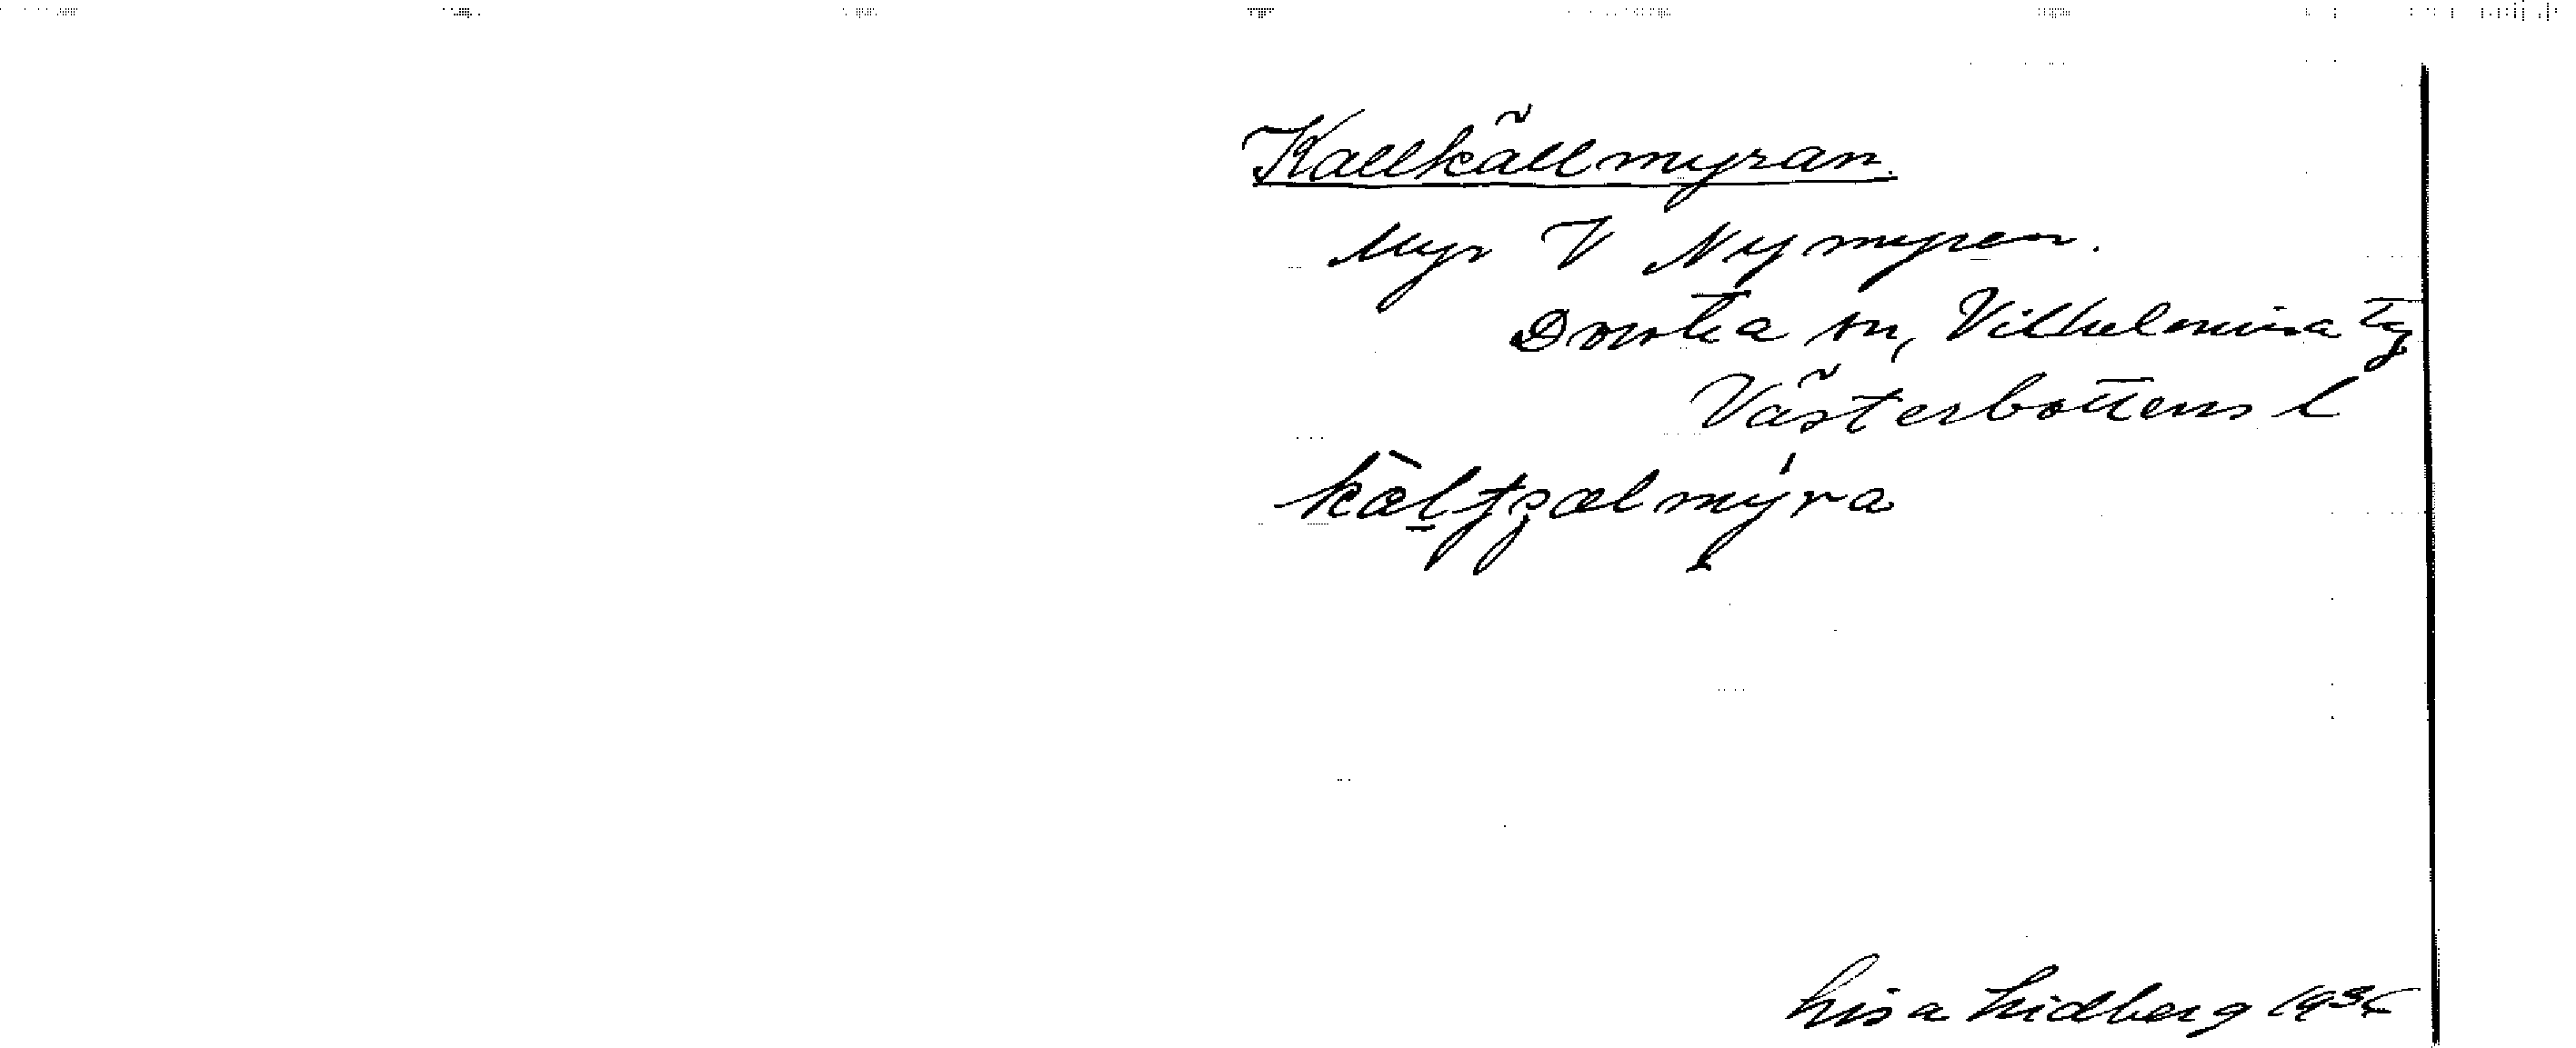 Kallkällmyran.
Myr V Nymyren.
Dorotea sn, Vilhelmina tg
Västerbottens l
Lisa Lidberg